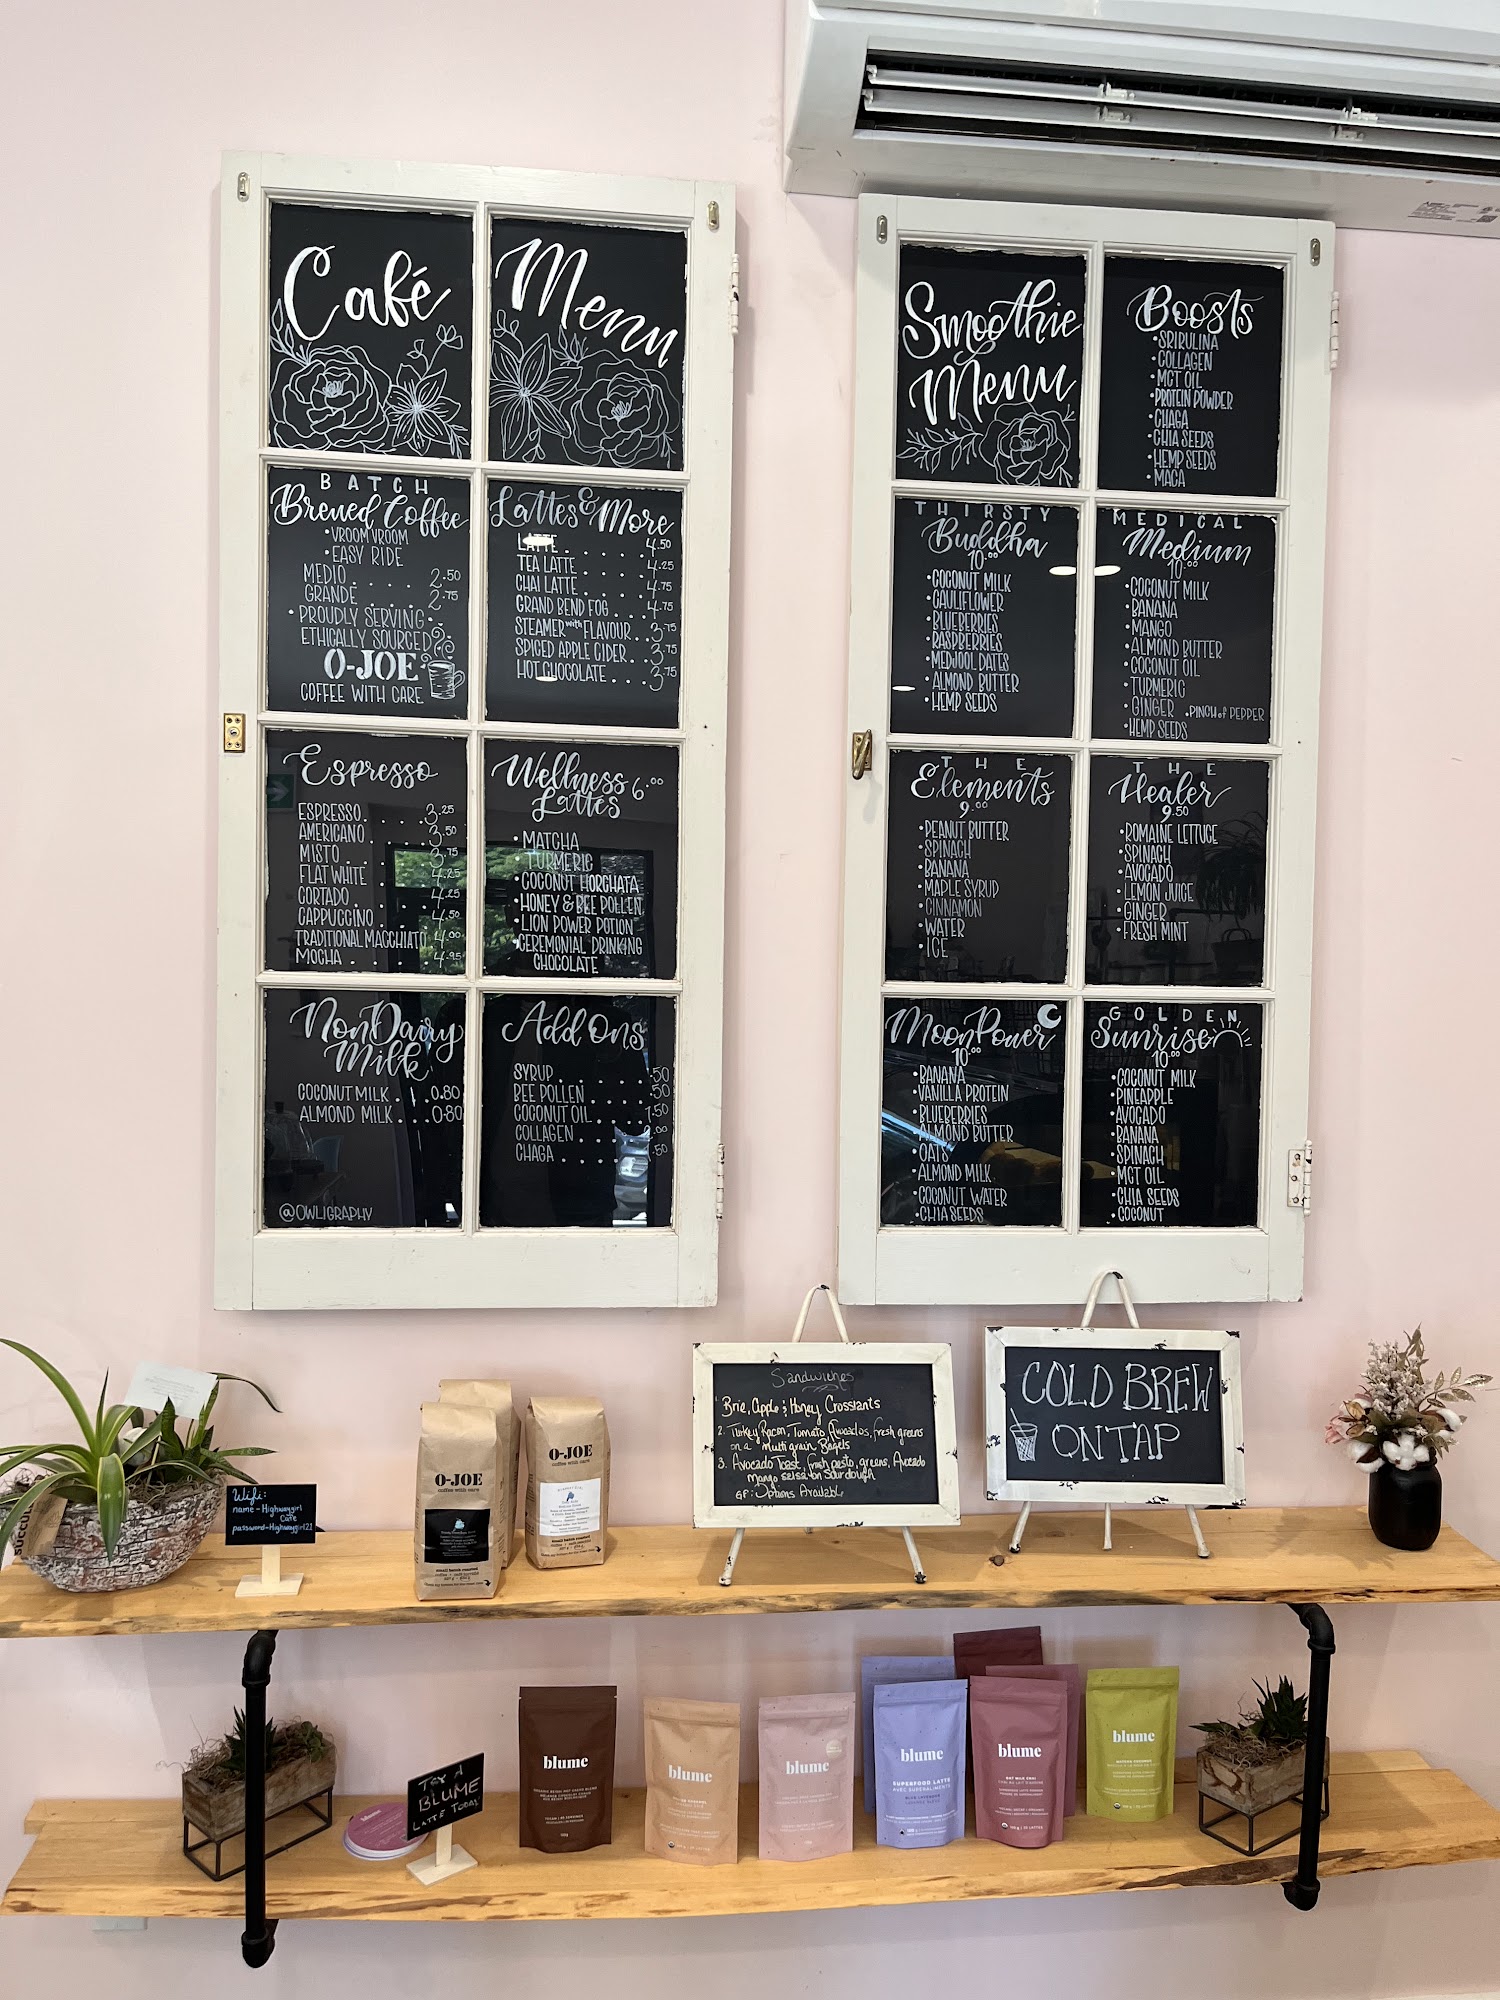 Café
Menu
BATCH
Brewed Coffee
• VROOM VROOM
• EASY RIDE
MEDIO . . . . . 2.50
GRANDE . . . . . 2.75
• PROUDLY SERVING •
ETHICALLY SOURCED
O-JOE
COFFEE WITH CARE
Lattes & More
LATTE . . . . . 4.50
TEA LATTE . . . . 4.25
CHAI LATTE . . . . 4.75
GRAND BEND FOG . . . 4.75
STEAMER with FLAVOUR . . 3.75
SPICED APPLE CIDER . . 3.75
HOT CHOCOLATE . . . 3.75
Espresso
ESPRESSO . . . . 3.25
AMERICANO . . . . 3.50
MISTO . . . . . 3.75
FLAT WHITE . . . . 4.25
CORTADO . . . . 4.25
CAPPUCCINO . . . . 4.50
TRADITIONAL MACCHIATO 4.00
MOCHA . . . . . 4.95
Wellness 6.00
Lattes
• MATCHA
• TURMERIC
• COCONUT HORCHATA
• HONEY & BEE POLLEN
• LION POWER POTION
• CEREMONIAL DRINKING
CHOCOLATE
Non Dairy
Milk
COCONUT MILK . . . 0.80
ALMOND MILK . . . 0.80
@OWLIGRAPHY
Add Ons
SYRUP . . . . . .50
BEE POLLEN . . . . .50
COCONUT OIL . . . 1.50
COLLAGEN
CHAGA
Smoothie
Menu
Boosts
• SRIRULINA
• COLLAGEN
• MCT OIL
• PROTEIN POWDER
• CHAGA
• CHIA SEEDS
• HEMP SEEDS
• MACA
THIRSTY
Buddha
10.00
• COCONUT MILK
• CAULIFLOWER
• BLUEBERRIES
• RASPBERRIES
• MEDJOOL DATES
• ALMOND BUTTER
• HEMP SEEDS
MEDICAL
Medium
10.00
• COCONUT MILK
• BANANA
• MANGO
• ALMOND BUTTER
• COCONUT OIL
• TURMERIC
• GINGER • PINCH of PEPPER
• HEMP SEEDS
THE
Elements
9.00
• PEANUT BUTTER
• SPINACH
• BANANA
• MAPLE SYRUP
• CINNAMON
• WATER
• ICE
THE
Healer
9.50
• ROMAINE LETTUCE
• SPINACH
• AVOCADO
• LEMON JUICE
• GINGER
• FRESH MINT
Moon Power
10.00
• BANANA
• VANILLA PROTEIN
• BLUEBERRIES
• ALMOND BUTTER
• OATS
• ALMOND MILK
• COCONUT WATER
• CHIA SEEDS
GOLDEN
Sunrise
10.00
• COCONUT MILK
• PINEAPPLE
• AVOCADO
• BANANA
• SPINACH
• MCT OIL
• CHIA SEEDS
• COCONUT
Sandwiches
Brie, Apple & Honey Crossiants
2. Turkey Bacon, Tomato Avocados, fresh greens
on a Multigrain Bagels
3. Avocado Toast, fresh pesto, greens, Avocado
Mango salsa on Sourdough
GF: Options Available
COLD BREW
ON TAP
Wifi:
name - Highwaygirl
Cafe
password - Highwaygirl21
O-JOE
coffee with care
small batch roasted
O-JOE
coffee with care
small batch roasted
TRY A
BLUME
LATTE TODAY
blume
blume
blume
blume
SUPERFOOD LATTE
blume
OAT MILK CHAI
blume
MATCHA COCONUT